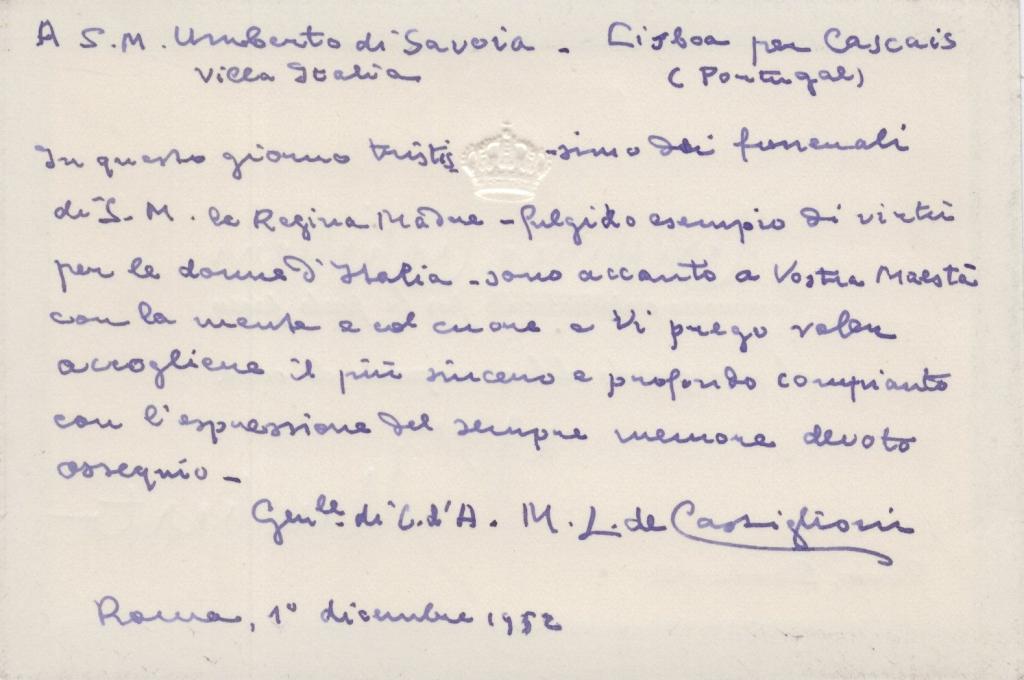 A S.M. Umberto di Savoia - Lisboa per Cascais
Villa Italia (Portugal)
In questo giorno tristis -simo dei funerali
di S.M. la Regina Madre - fulgido esempio di virtù
per le donne d'Italia - sono accanto a Vostra Maestà
con la mente e col cuore e Vi prego voler
accogliere il più sincero e profondo compianto
con l'espressione del sempre memore devoto
ossequio -
Gen.le di C. d'A. M. L. de Castiglioni
Roma, 1° dicembre 1952